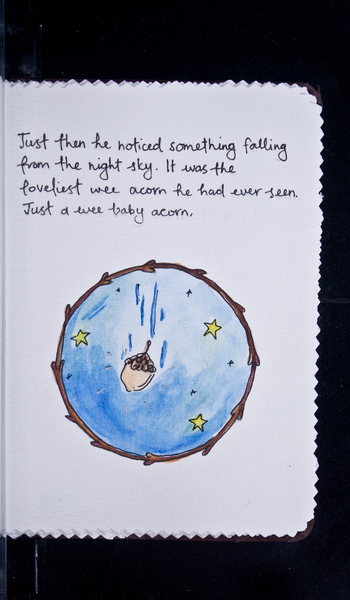 Just then he noticed something falling
from the night sky. It was the
loveliest wee acorn he had ever seen.
Just a wee baby acorn.